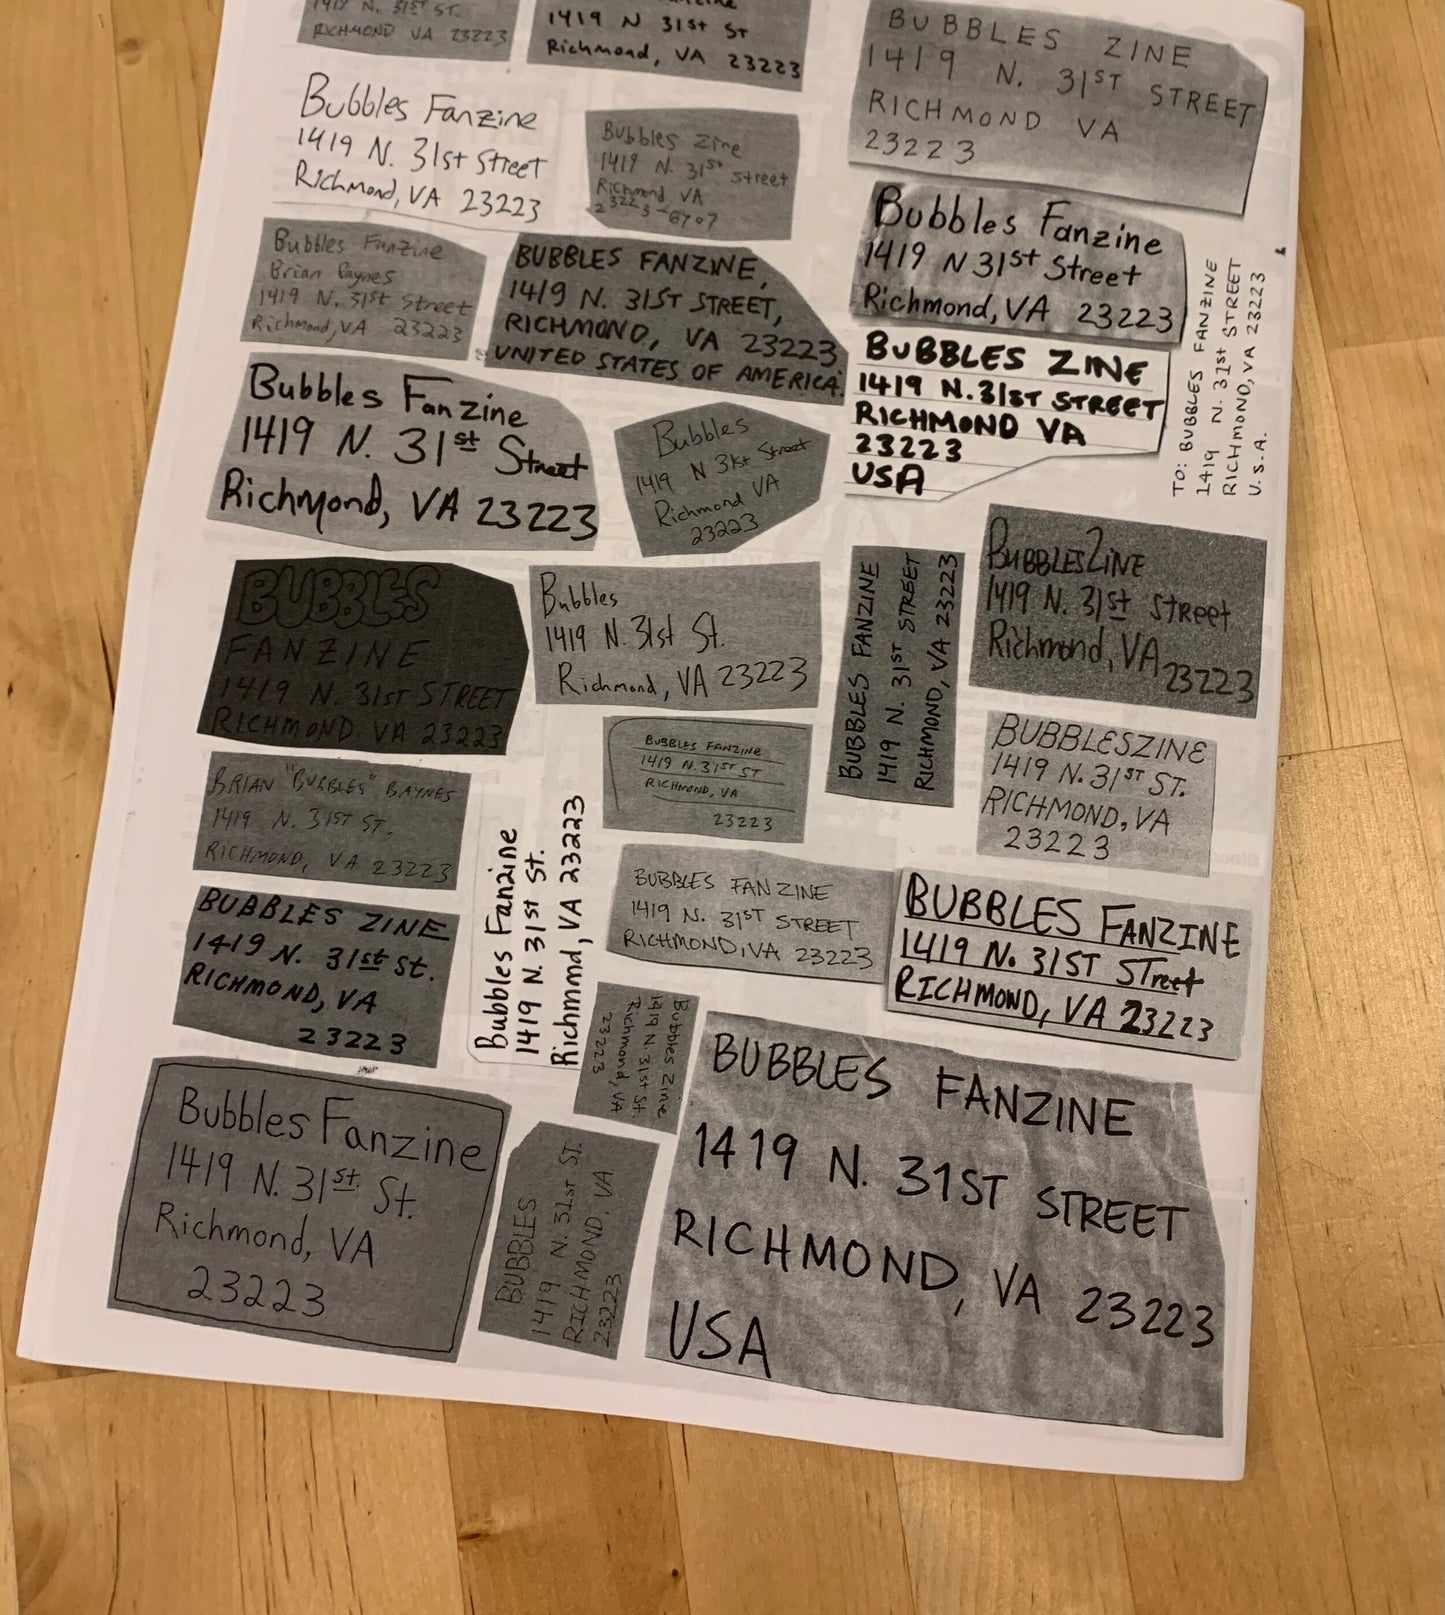 1419 N. 31ST ST.
RICHMOND VA 23223
1419 N 31st St
Richmond, VA 23223
BUBBLES ZINE
1419 N. 31ST STREET
RICHMOND VA
23223
Bubbles Fanzine
1419 N. 31st Street
Richmond, VA 23223
Bubbles Zine
1419 N. 31st Street
Richmond VA
23223-6707
Bubbles Fanzine
1419 N 31st Street
Richmond, VA 23223
TO: BUBBLES FANZINE
1419 N. 31st STREET
RICHMOND, VA 23223
U.S.A.
Bubbles Fanzine
Brian Baynes
1419 N. 31st Street
Richmond, VA 23223
BUBBLES FANZINE,
1419 N. 31ST STREET,
RICHMOND, VA 23223
UNITED STATES OF AMERICA.
BUBBLES ZINE
1419 N. 31ST STREET
RICHMOND VA
23223
USA
Bubbles Fanzine
1419 N. 31st Street
Richmond, VA 23223
Bubbles
1419 N 31st Street
Richmond VA
23223
BUBBLES
FANZINE
1419 N. 31ST STREET
RICHMOND VA 23223
Bubbles
1419 N. 31st St.
Richmond, VA 23223
BUBBLES FANZINE
1419 N. 31ST STREET
RICHMOND, VA 23223
BUBBLESZINE
1419 N. 31st Street
Richmond, VA 23223
BRIAN "BUBBLES" BAYNES
1419 N. 31ST ST.
RICHMOND, VA 23223
BUBBLES FANZINE
1419 N. 31ST ST
RICHMOND, VA
23223
BUBBLESZINE
1419 N. 31ST ST.
RICHMOND, VA
23223
BUBBLES ZINE
1419 N. 31st St.
RICHMOND, VA
23223
Bubbles Fanzine
1419 N. 31st St.
Richmond, VA 23223
BUBBLES FANZINE
1419 N. 31ST STREET
RICHMOND, VA 23223
BUBBLES FANZINE
1419 N. 31ST STreet
RICHMOND, VA 23223
Bubbles Zine
1419 N. 31st St.
Richmond, VA
23223
Bubbles Fanzine
1419 N. 31st. St.
Richmond, VA
23223
BUBBLES
1419 N. 31st ST.
RICHMOND, VA
23223
BUBBLES FANZINE
1419 N. 31ST STREET
RICHMOND, VA 23223
USA